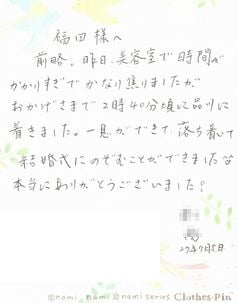 福田様へ
前略。昨日、美容室で時間が
かかりすぎてかなり焦りましたが
おかげさまで2時40分頃に品川に
着きました。一息ができて、落ち着いて
結婚式にのぞむことができました
本当にありがとうございました!
27年7月5日
©nami nami series Clothes-Pin